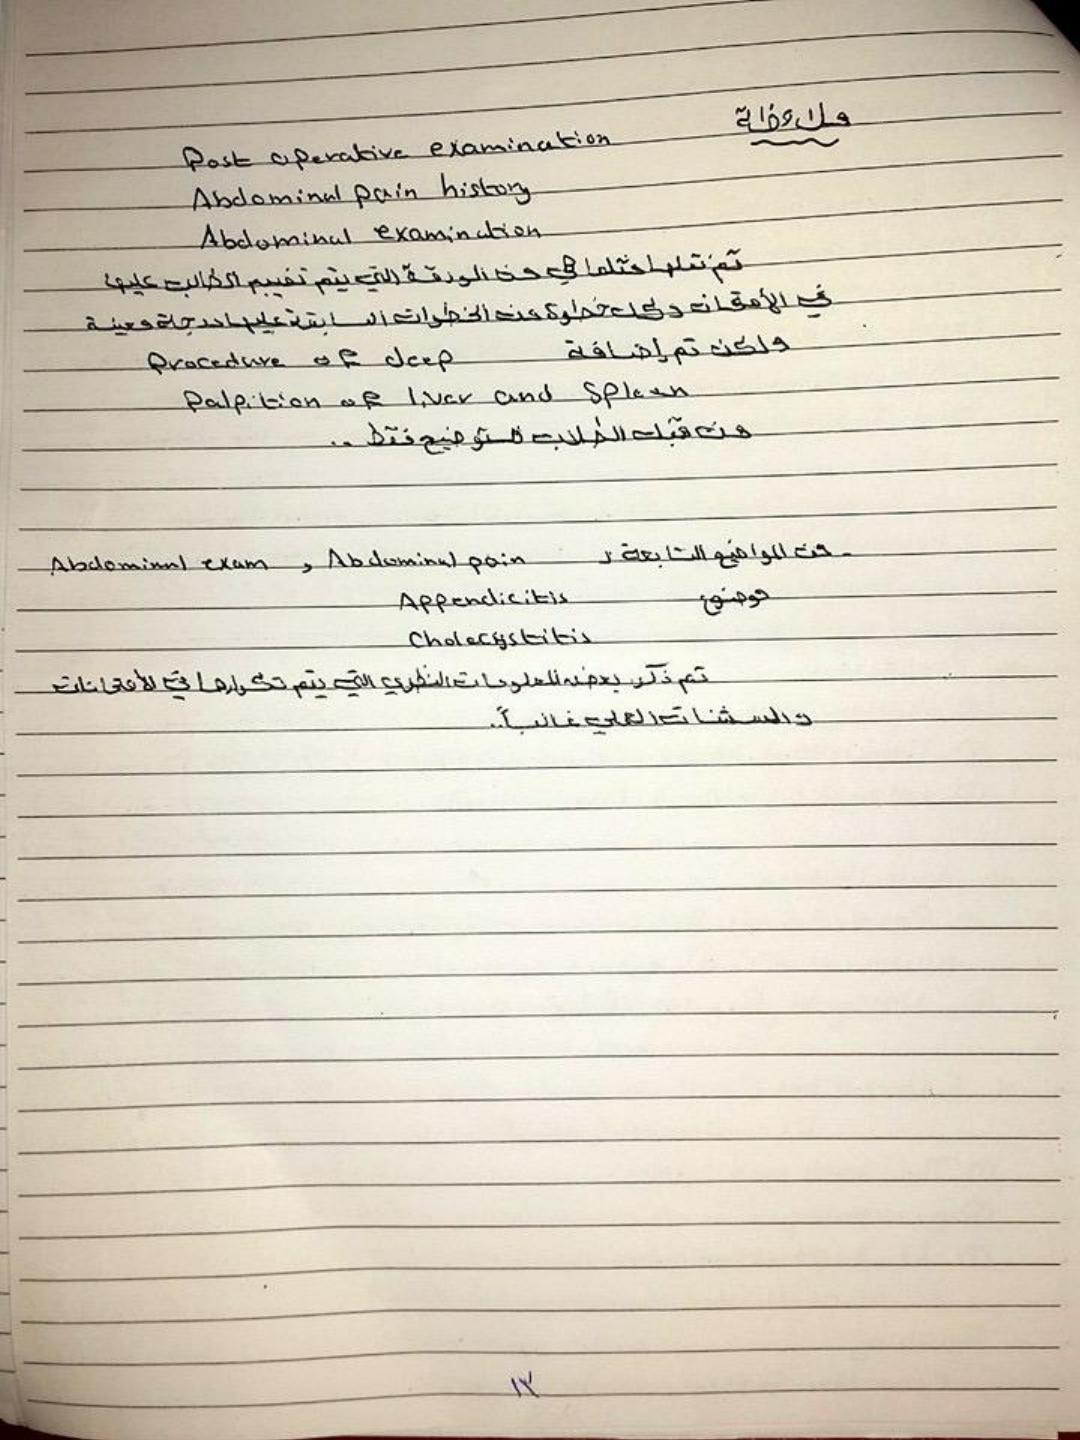 ملاحظة
Post operative examination
Abdominal pain history
Abdominal examination
تم نقلها مثلما هي من الورقة التي يتم تقييم الطالب عليها
في الامتحان وكل خطوة من الخطوات السابقة عليها درجات معينة
ولكن تم إضافة Procedure of deep
Palpition of liver and Spleen
من قبل الطلاب للتوضيح فقط ..
- من المواضيع السابعة Abdominal pain , Abdominal exam
موضوع Appendicitis
Cholecystitis
تم ذكر بعض المعلومات النظري التي يتم تكرارها في الأمتحانات
العملي غالباً ..